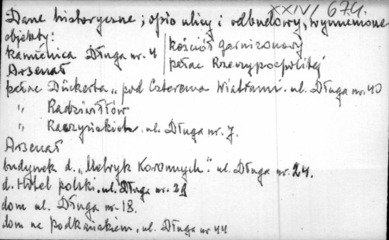 XXIV/674.
Dane historyczne; opis ulicy i odbudowy, wymienione
obiekty: kościół garnizonowy
kamienica Długa nr. 4 pałac Rzeczypospolitej
Arsenał
pałac Dückerta „pod Czterema Wiatrami. ul. Długa nr. 40
" Radziwiłłów
" Raczyńskich. ul. Długa nr. 7.
Arsenał
budynek d. „Metryk Koronnych." ul. Długa nr. 24.
d. Hotel polski. ul. Długa nr. 29
dom ul. Długa nr. 18.
dom ul. Długa nr 44